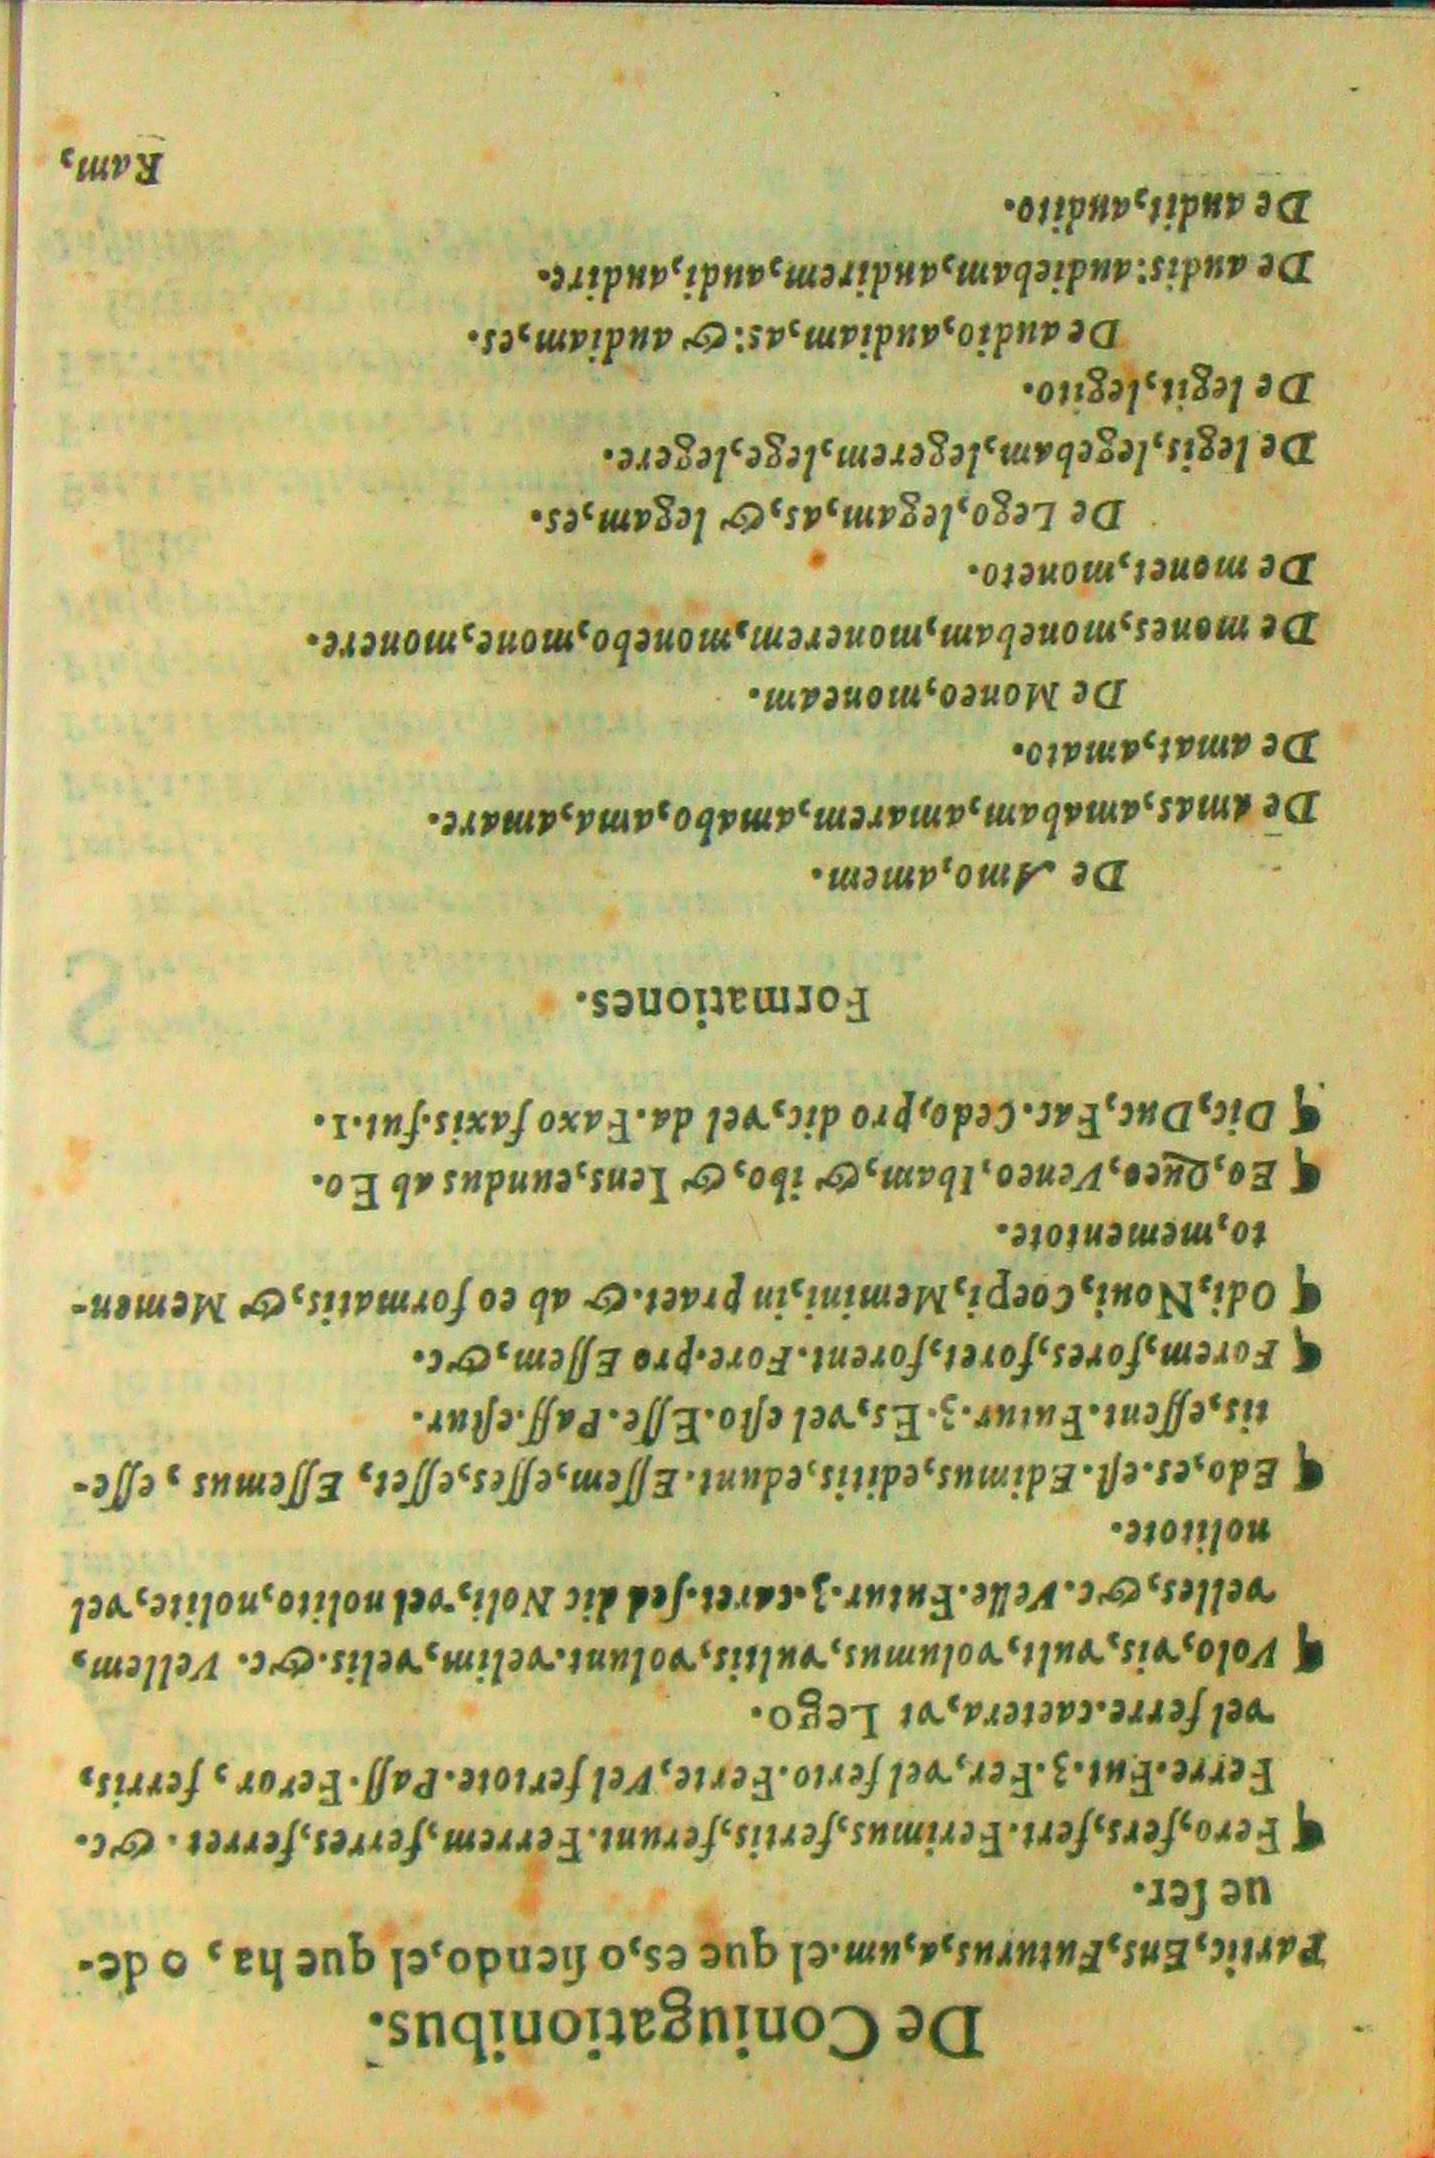 De Coniugationibus.
Partic, Ens, Futurus, a, um. el que es, o siendo, el que ha, o de-
ue ser.
¶ Fero, fers, fert. Ferimus, fertis, ferunt. Ferrem, ferres, ferret. &c.
Ferre. Fut. 3. Fer, vel ferto. Ferte, Vel fertote. Pass. Feror, ferris,
vel ferre. caetera, vt Lego.
¶ Volo, vis, vult, volumus, vultis, volunt. velim, velis. &c. Vellem,
velles, &c. Velle. Futur. 3. caret. sed dic Noli, vel nolito, nolite, vel
nolitote.
¶ Edo, es. est. Edimus, editis, edunt. Essem, esses, esset, Essemus, esse-
tis, essent. Futur. 3. Es, vel esto. Esse. Pass. estur.
¶ Forem, fores, foret, forent. Fore. pro Essem, &c.
¶ Odi, Noui, Coepi, Memini, in praet. & ab eo formatis, & Memen-
to, mementote.
¶ Eo, Queo, Veneo, Ibam, & ibo, & Iens, eundus ab Eo.
¶ Dic, Duc, Fac. Cedo, pro dic, vel da. Faxo faxis. fut. 1.
Formationes.
De Amo, amem.
De amas, amabam, amarem, amabo, ama, amare.
De amat, amato.
De Moneo, moneam.
De mones, monebam, monerem, monebo, mone, monere.
De monet, moneto.
De Lego, legam, as, & legam, es.
De legis, legebam, legerem, lege, legere.
De legit, legito.
De audio, audiam, as: & audiam, es.
De audis: audiebam, audirem, audi, audire.
De audit, audito.
Ram,